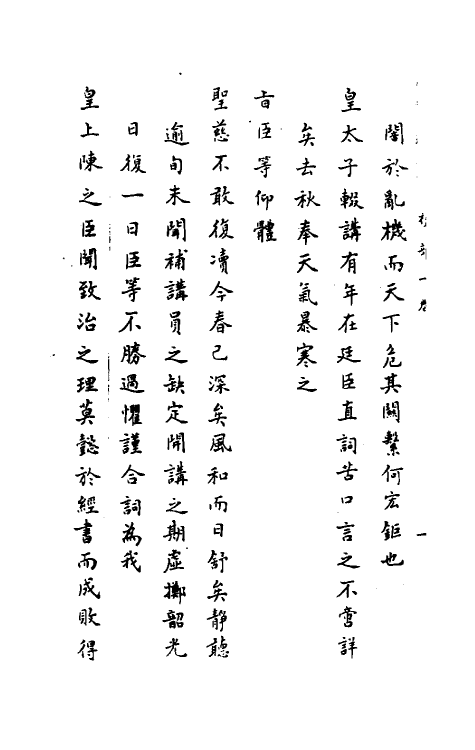 闇於亂機而天下危其關繫何宏鉅也
皇太子輟講有年在廷臣直詞苦口言之不啻詳
矣去秋奉天氣暴寒之
旨臣等仰體
聖慈不敢復凟今春已深矣風和而日舒矣静聽
逾旬未聞補講員之缺定開講之期虛擲韶光
日復一日臣等不勝過懼謹合詞為我
皇上陳之臣聞致治之理莫懿於經書而成敗得